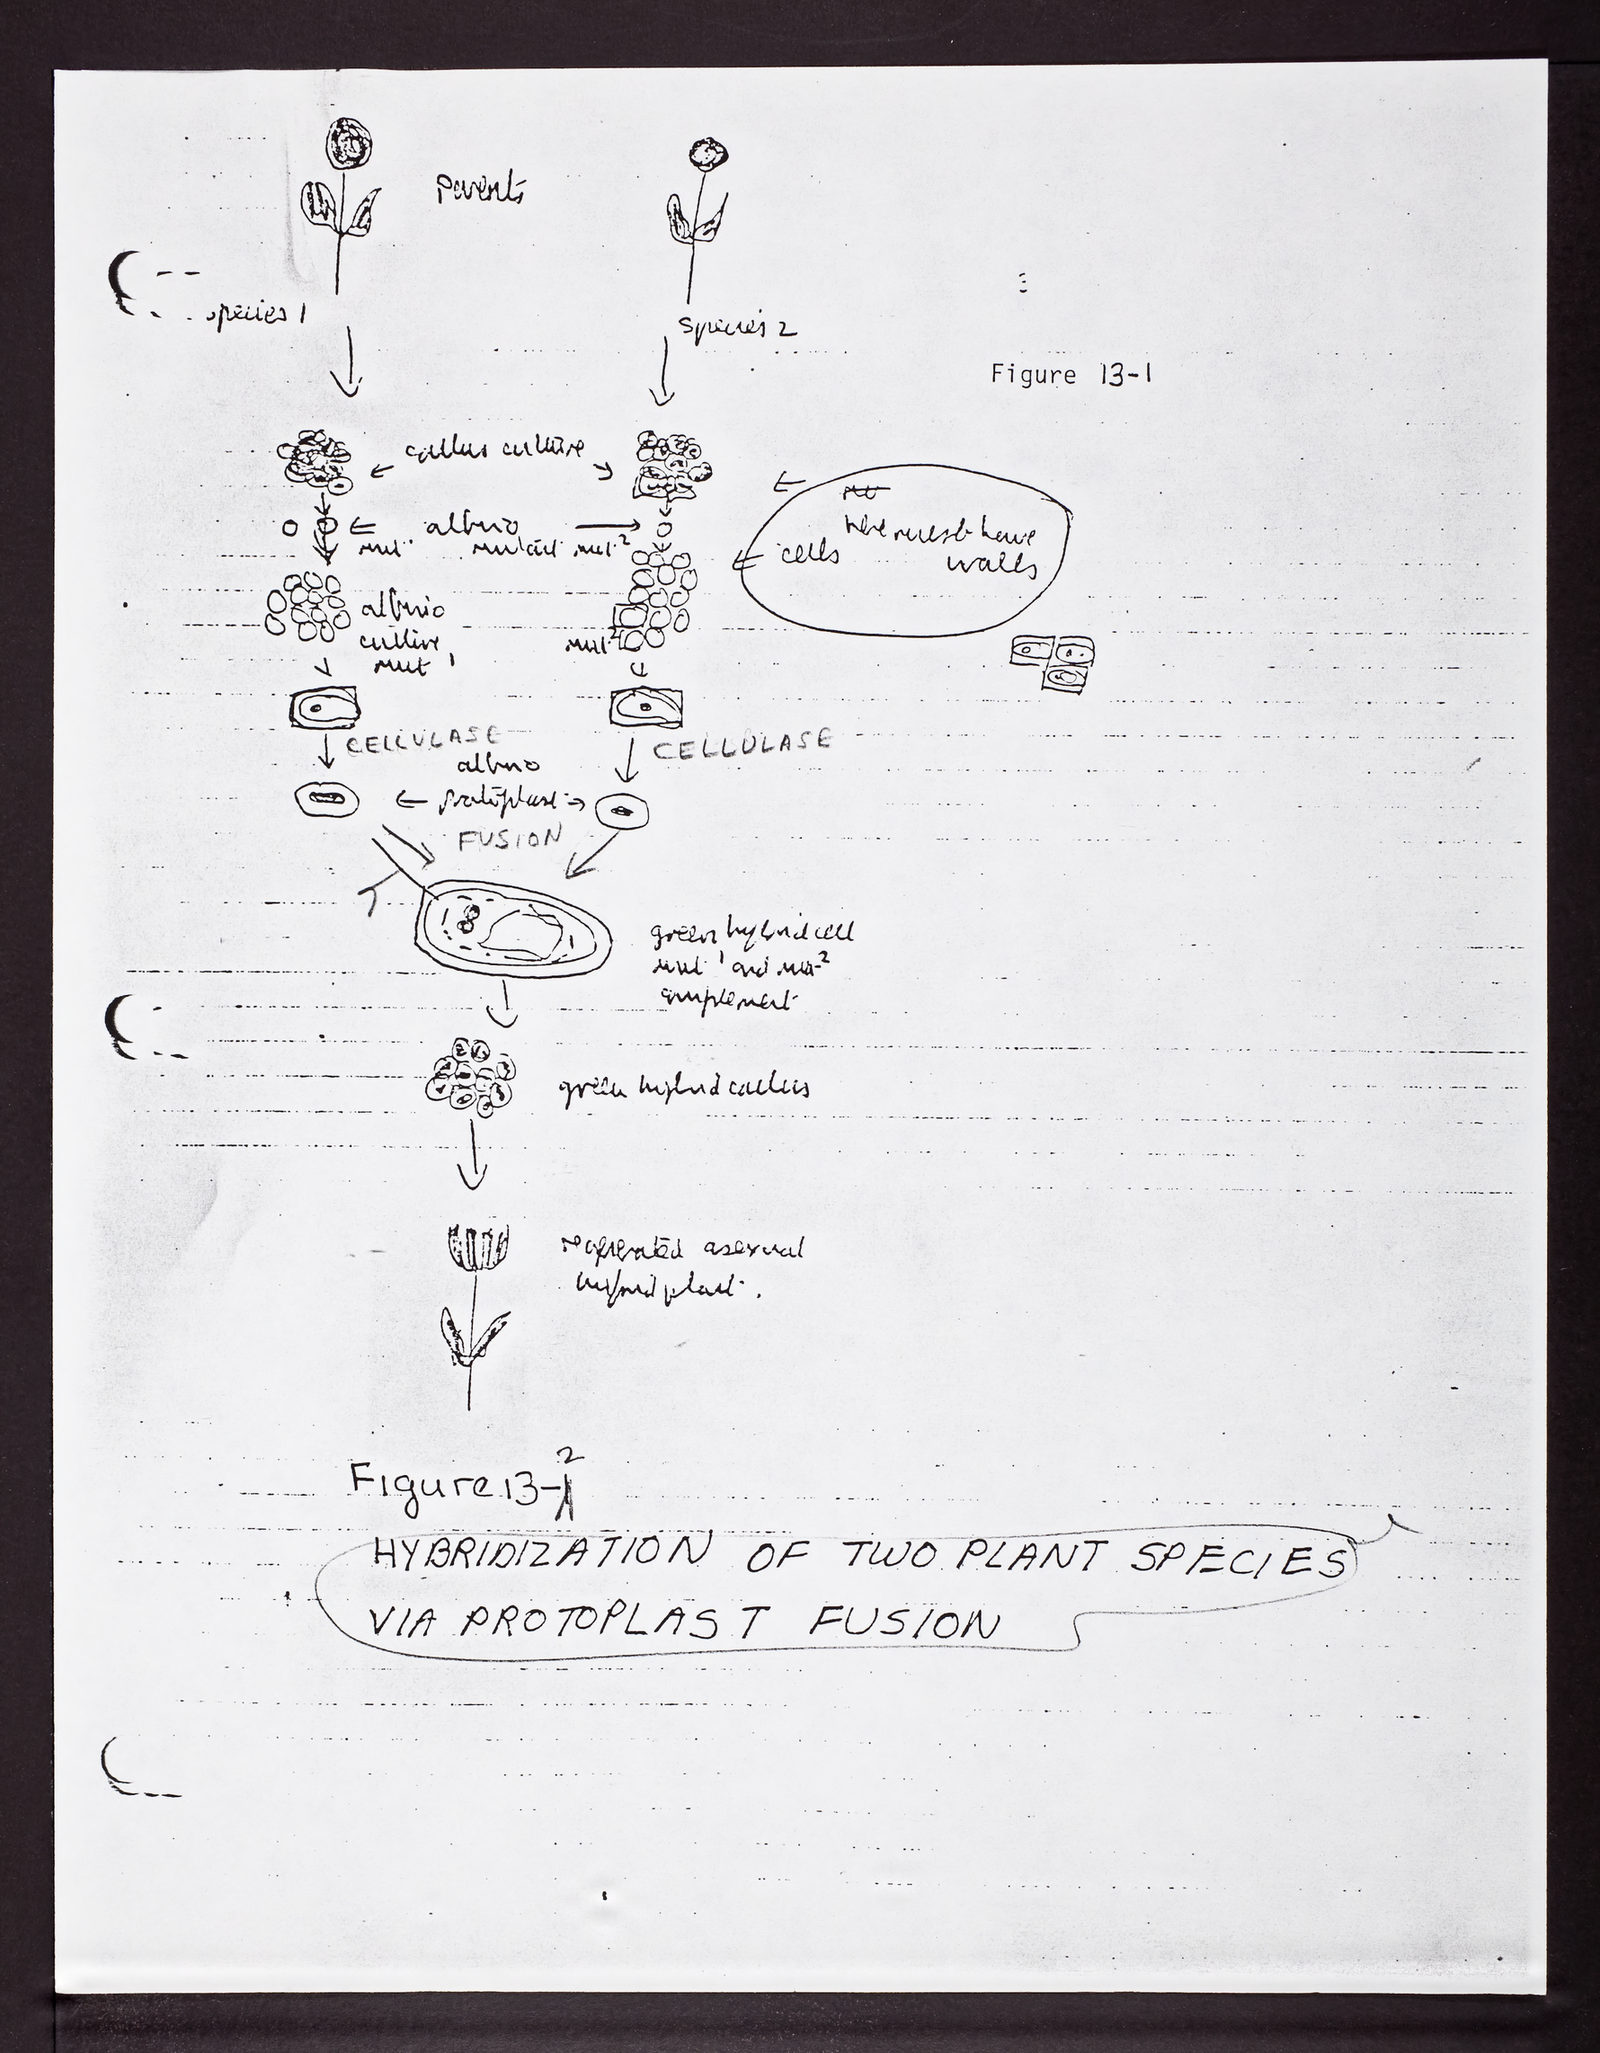 Parents
species 1
Species 2
Figure 13-1
callus culture
albino
mut mutant mut 2
cells these must have
walls
albino
culture
mut 1
mut 2
CELLULASE
CELLULASE
albino
protoplast
FUSION
green hybrid cell
mut 1 and mut 2
complement
green hybrid callus
regenerated asexual
hybrid plant.
Figure 13-2
HYBRIDIZATION OF TWO PLANT SPECIES
VIA PROTOPLAST FUSION